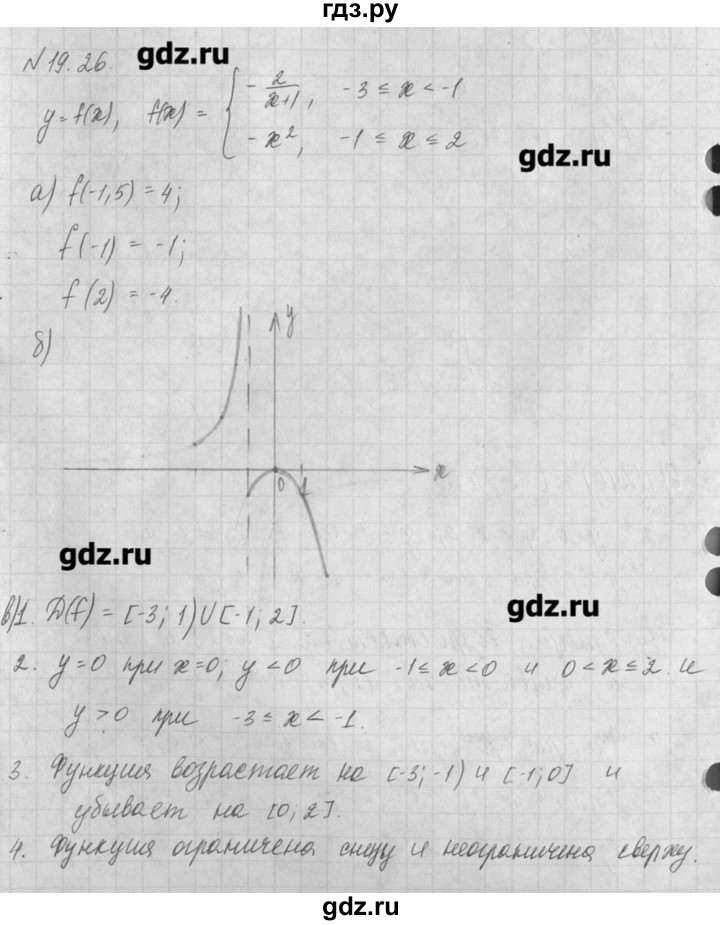 гдз.ру
№19.26. gdz.ru
y=f(x), f(x) = { -2/(x+1), -3 ≤ x < -1
-x², -1 ≤ x ≤ 2
gdz.ru
а) f(-1,5) = 4;
f(-1) = -1;
f(2) = -4.
б)
y
x
0 1
gdz.ru
gdz.ru
в)1. D(f) = [-3; 1) U [-1; 2].
2. y=0 при x=0; y <0 при -1≤ x <0 и 0 < x ≤ 2. и
y > 0 при -3 ≤ x < -1.
3. Функция возрастает на [-3; -1) и [-1; 0] и
убывает на [0; 2].
4. Функция ограничена снизу и неограничена сверху.
gdz.ru